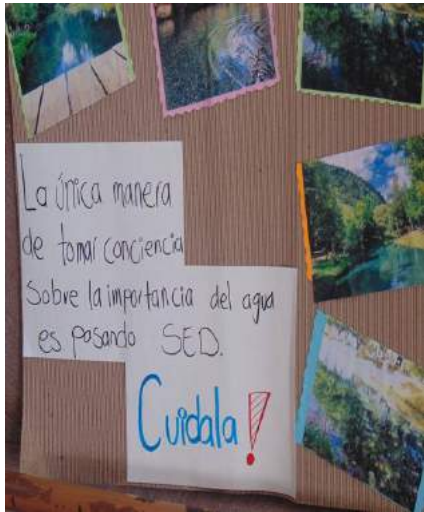 La única manera
de tomar conciencia
Sobre la importancia del agua
es pasando SED.
Cuidala!